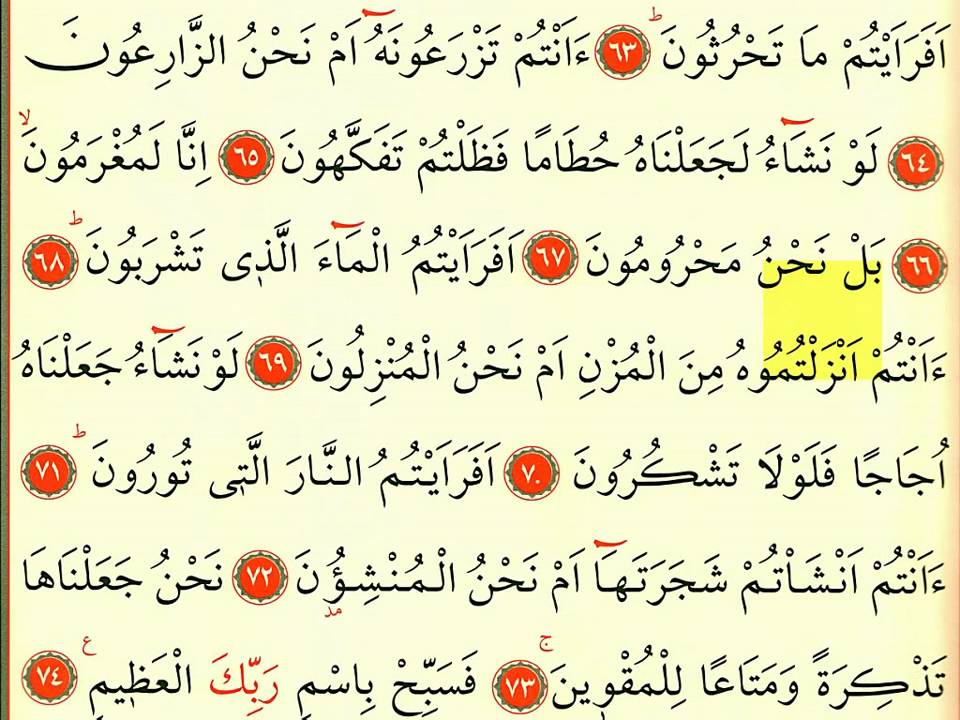 اَفَرَاَيْتُمْ مَا تَحْرُثُونَۜ ﴿٦٣﴾ ءَاَنْتُمْ تَزْرَعُونَهُٓ اَمْ نَحْنُ الزَّارِعُونَ
﴿٦٤﴾ لَوْ نَشَٓاءُ لَجَعَلْنَاهُ حُطَامًا فَظَلْتُمْ تَفَكَّهُونَ ﴿٦٥﴾ اِنَّا لَمُغْرَمُونَۙ
﴿٦٦﴾ بَلْ نَحْنُ مَحْرُومُونَ ﴿٦٧﴾ اَفَرَاَيْتُمُ الْمَٓاءَ الَّذ۪ى تَشْرَبُونَۜ ﴿٦٨﴾
ءَاَنْتُمْ اَنْزَلْتُمُوهُ مِنَ الْمُزْنِ اَمْ نَحْنُ الْمُنْزِلُونَ ﴿٦٩﴾ لَوْ نَشَٓاءُ جَعَلْنَاهُ
اُجَاجًا فَلَوْلَا تَشْكُرُونَ ﴿٧٠﴾ اَفَرَاَيْتُمُ النَّارَ الَّت۪ى تُورُونَۜ ﴿٧١﴾
ءَاَنْتُمْ اَنْشَاْتُمْ شَجَرَتَهَٓا اَمْ نَحْنُ الْمُنْشِؤُ۫نَ ﴿٧٢﴾ نَحْنُ جَعَلْنَاهَا
تَذْكِرَةً وَمَتَاعًا لِلْمُقْو۪ينَۚ ﴿٧٣﴾ فَسَبِّحْ بِاسْمِ رَبِّكَ الْعَظ۪يمِ ع ﴿٧٤﴾